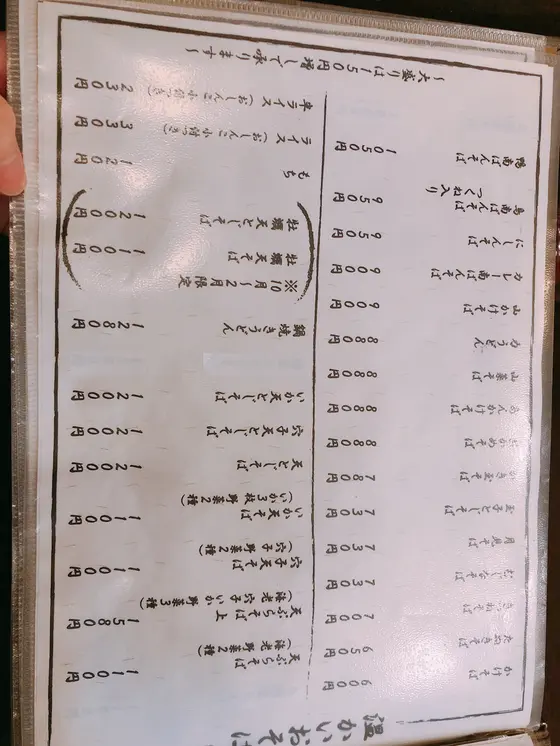 温かいおそば
かけそば 600円
たぬきそば 650円
きつねそば 700円
むじなそば 730円
月見そば 730円
玉子とじそば 730円
かき玉そば 780円
わかめそば 880円
あんかけそば 880円
山菜そば 880円
力うどん 880円
山かけそば 900円
カレー南ばんそば 900円
にしんそば 950円
鳥南ばんそば 950円
つくね入り
鴨南ばんそば 1050円
天ぷらそば 1100円
(海老 野菜2種)
上天ぷらそば 1580円
(海老 穴子 いか 野菜3種)
穴子天そば 1100円
(穴子 野菜2種)
いか天そば 1100円
(いか3枚 野菜2種)
天とじそば 1200円
穴子天とじそば 1200円
いか天とじそば 1200円
鍋焼きうどん 1280円
※10月〜2月限定
牡蠣天そば 1100円
牡蠣天とじそば 1200円
もち 120円
ライス(おしんこ 小付き) 330円
半ライス(おしんこ 小付き) 230円
〜大盛りは150円増しで承ります〜